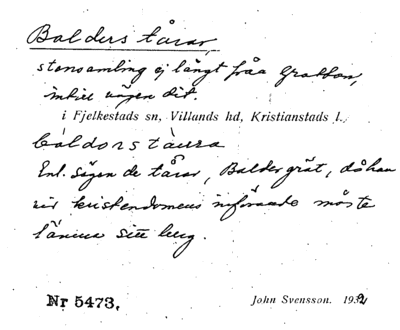 Balders tårar,
stensamling ej långt från Grottan,
intill vägen dit.
i Fjelkestads sn, Villands hd, Kristianstads l.
báldorstàura
Enl. sägen de tårar, Balder grät, då han
vid kristendomens införande måste
lämna sitt berg.
Nr 5473. John Svensson. 1932